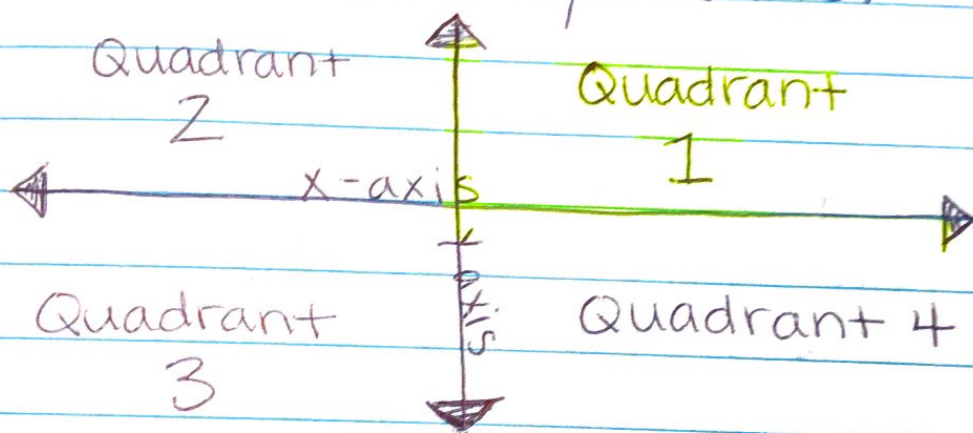 Quadrant
2
Quadrant
1
x-axis
Y axis
Quadrant
3
Quadrant 4